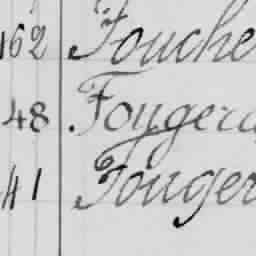 162 Fouche
48 Fougera
41 Fouger